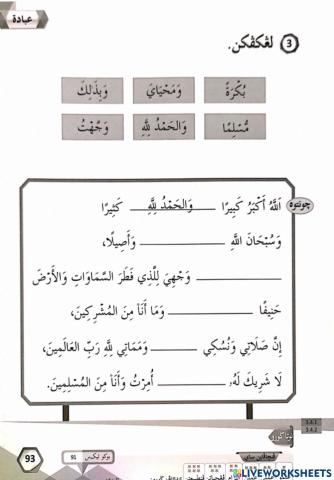 عبادة
3 لڠكڤكن.
بُكْرَةً وَمَحْيَايَ وَبِذَٰلِكَ
مُسْلِمًا وَالْحَمْدُ لِلَّهِ وَجَّهْتُ
چونتوه
اَللَّهُ أَكْبَرُ كَبِيرًا وَالْحَمْدُ لِلَّهِ كَثِيرًا
وَسُبْحَانَ اللَّهِ ____________ وَأَصِيلًا،
____________ وَجْهِيَ لِلَّذِي فَطَرَ السَّمَاوَاتِ وَالْأَرْضَ
حَنِيفًا ____________ وَمَا أَنَا مِنَ الْمُشْرِكِينَ،
إِنَّ صَلَاتِي وَنُسُكِي ____________ وَمَمَاتِي لِلَّهِ رَبِّ الْعَالَمِينَ،
لَا شَرِيكَ لَهُ، ____________ أُمِرْتُ وَأَنَا مِنَ الْمُسْلِمِينَ.
3.4.1
3.4.2
بوكو تيكس 91
93
LIVEWORKSHEETS